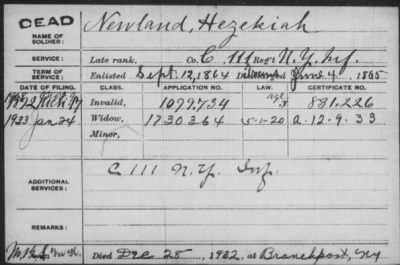 DEAD
NAME OF SOLDIER: Newland, Hezekiah
SERVICE: Late rank, Co. C, 111 Reg't N.Y. Inf.
TERM OF SERVICE: Enlisted Sept. 12, 1864 June 4, 1865
DATE OF FILING. CLASS. APPLICATION NO. LAW. CERTIFICATE NO.
Invalid, 1079.734 881.226
1933 Jan 24 Widow, 1730364 5-1-20 a-12.9.33
Minor,
ADDITIONAL SERVICES: C 111 N.Y. Inf.
REMARKS:
Died Dec 25, 1932, at Branchport, NY